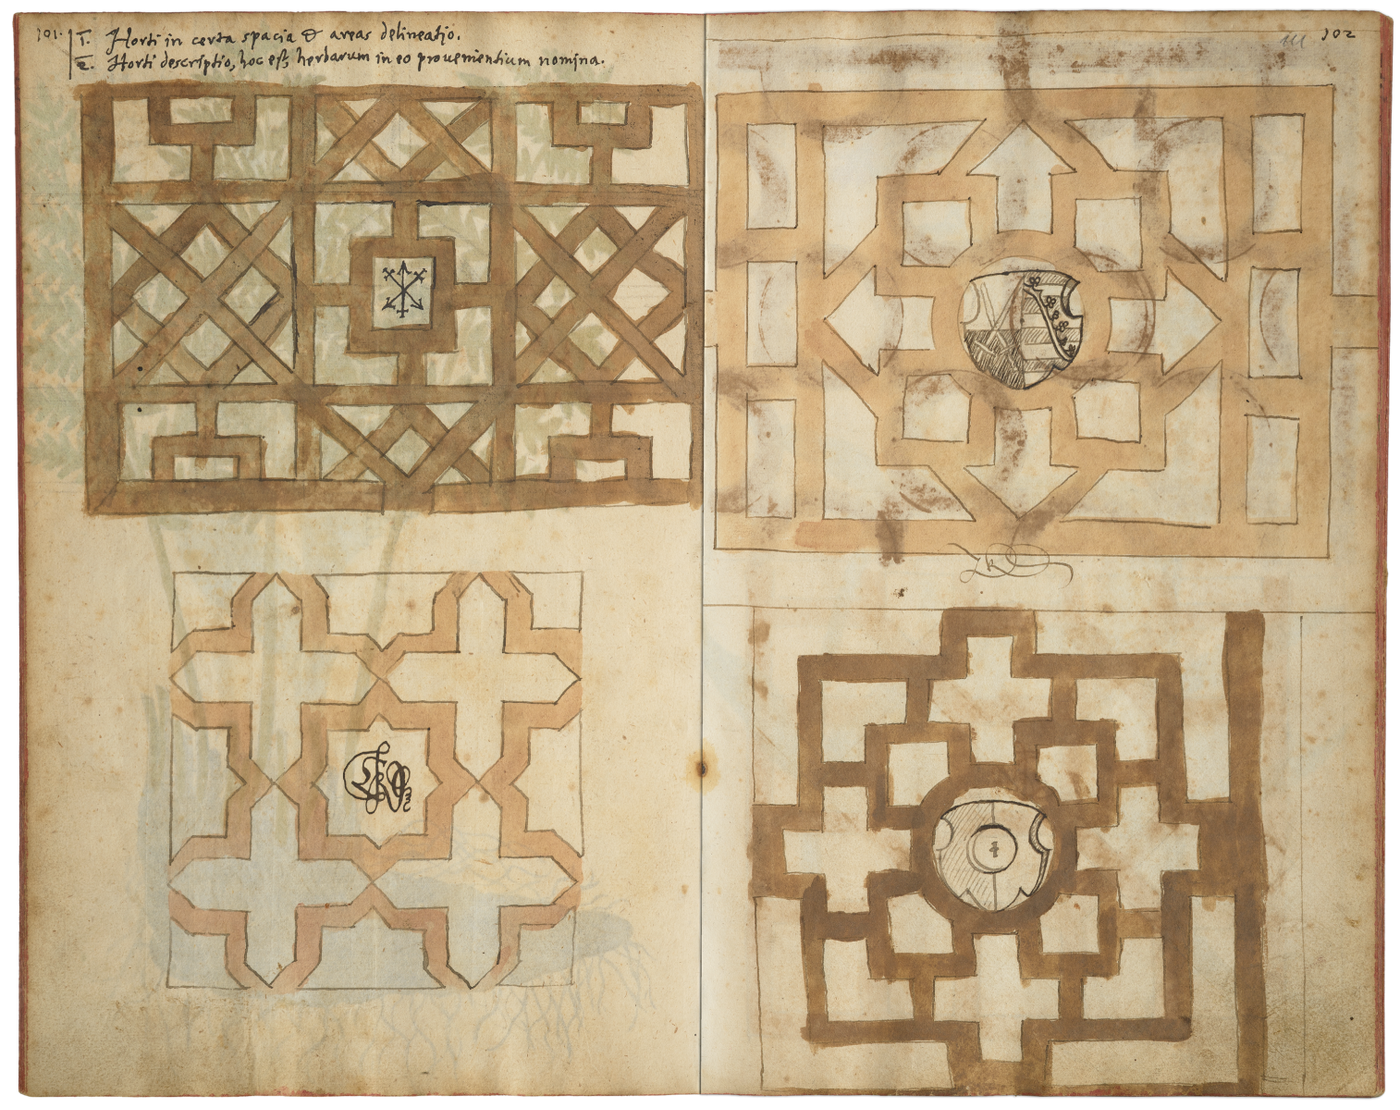 101. 1. Horti in certa spacia & areas delineatio.
2. Horti descriptio, hoc est, herbarum in eo provenientium nomina.
102